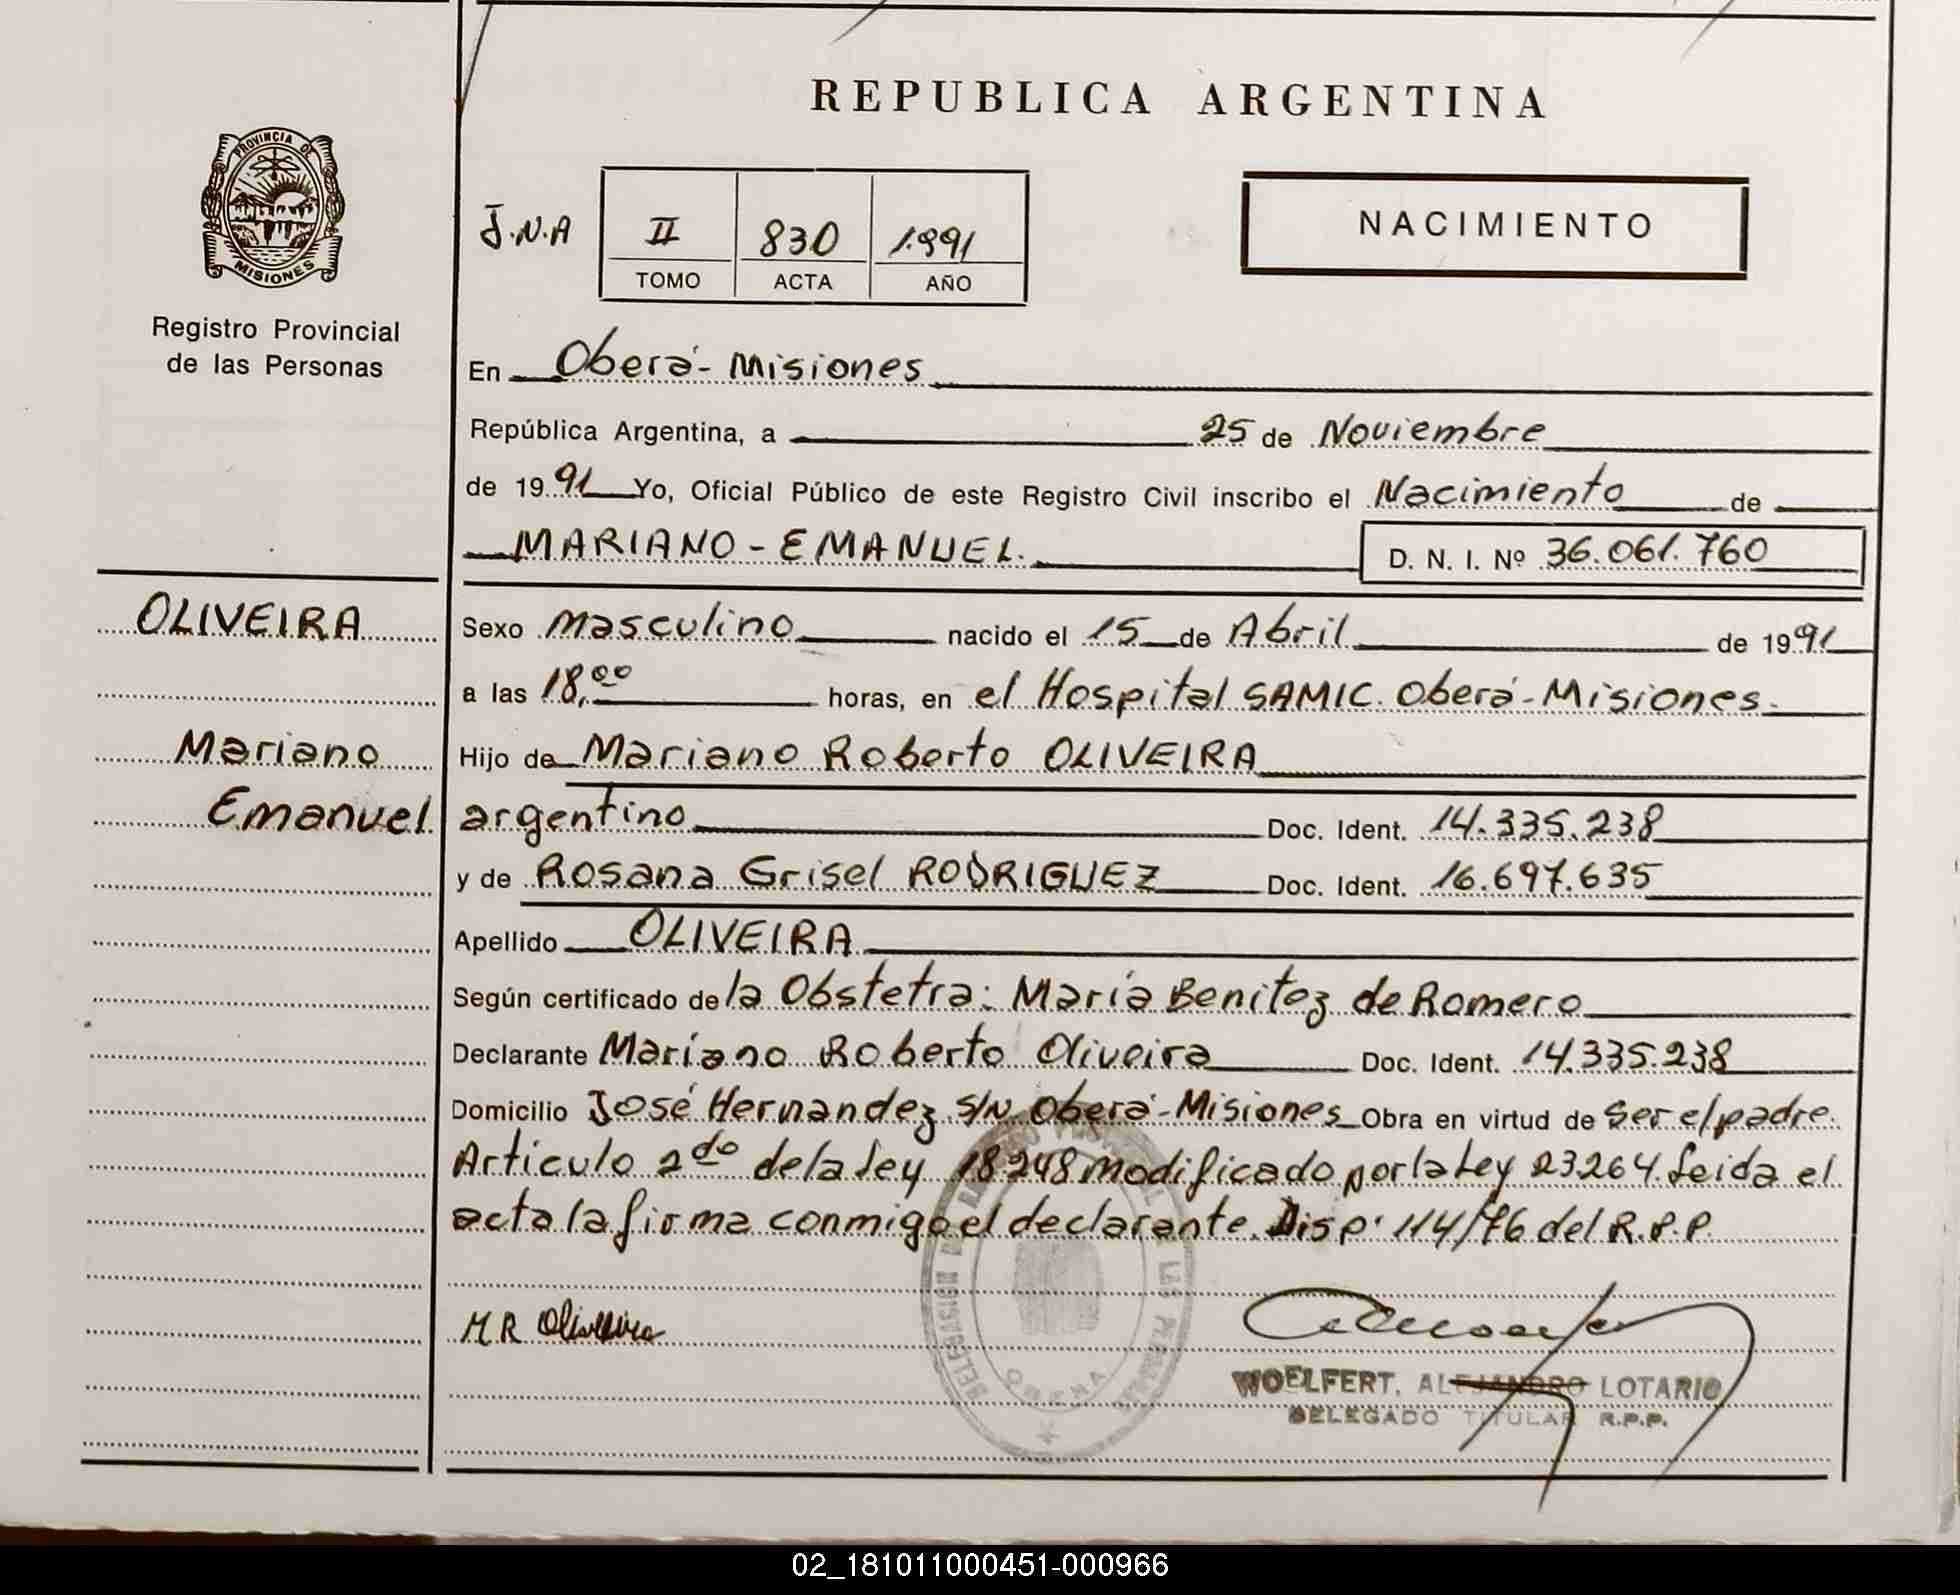 REPUBLICA ARGENTINA
PROVINCIA DE
MISIONES
Registro Provincial
de las Personas
J.N.A
II 830 1.991
TOMO ACTA AÑO
NACIMIENTO
En Oberá - Misiones
República Argentina, a 25 de Noviembre
de 1991 Yo, Oficial Público de este Registro Civil inscribo el Nacimiento de
MARIANO - EMANUEL. D. N. I. Nº 36.061.760
OLIVEIRA
Mariano
Emanuel
Sexo Masculino nacido el 15 de Abril de 1991
a las 18,00 horas, en el Hospital SAMIC. Oberá - Misiones.
Hijo de Mariano Roberto OLIVEIRA
argentino Doc. Ident. 14.335.238
y de Rosana Grisel RODRIGUEZ Doc. Ident. 16.697.635
Apellido OLIVEIRA
Según certificado de la Obstetra: María Benitez de Romero
Declarante Mariano Roberto Oliveira Doc. Ident. 14.335.238
Domicilio José Hernandez S/N Oberá - Misiones Obra en virtud de Ser el padre.
Articulo 2do de la Ley 18248 modificado por la Ley 23264. Leida el
acta la firma conmigo el declarante. Disp. 114/76 del R.P.P.
M R Oliveira
OBERA
WOELFERT, ALEJANDRO LOTARIO
DELEGADO TITULAR R.P.P.
02_181011000451-000966